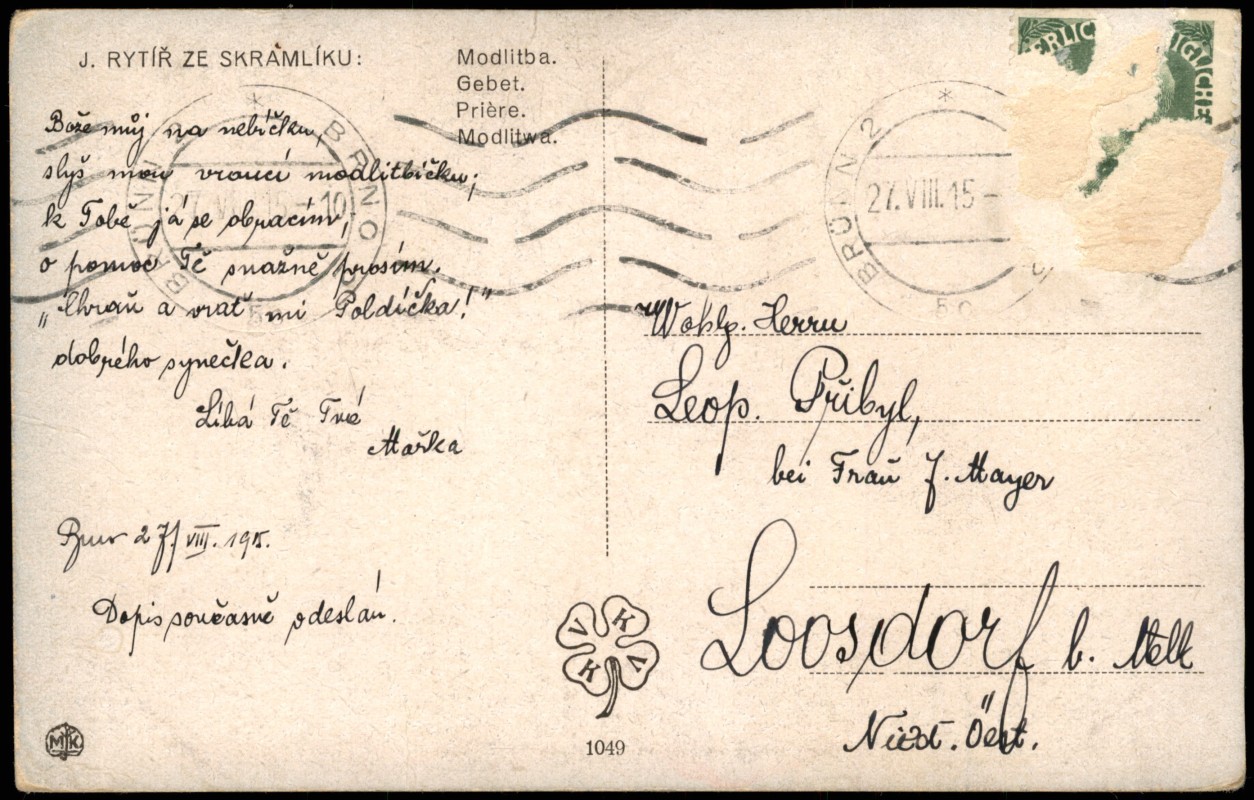 J. RYTÍŘ ZE SKRAMLÍKU:
Modlitba.
Gebet.
Prière.
Modlitwa.
Bože můj na nebíčku,
slyš mou vroucí modlitbičku;
k Tobě já se obracím,
o pomoc Tě snažně prosím.
„Chraň a vrať mi Poldíčka!"
dobrého synečka.
Líbá Tě Tvá
Mařka
Brno 27/VIII. 1915.
Dopis současně odeslán.
BRÜNN 2 * BRNO
27. VIII. 15 - 10
5c
BRÜNN 2 *
27. VIII. 15 -
5c
ERLIC
IGLICHE
Wohlg. Herrn
Leop. Přibyl,
bei Frau J. Mayer
Loosdorf b. Melk
Niedt. Öest.
V K V K
MJK
1049